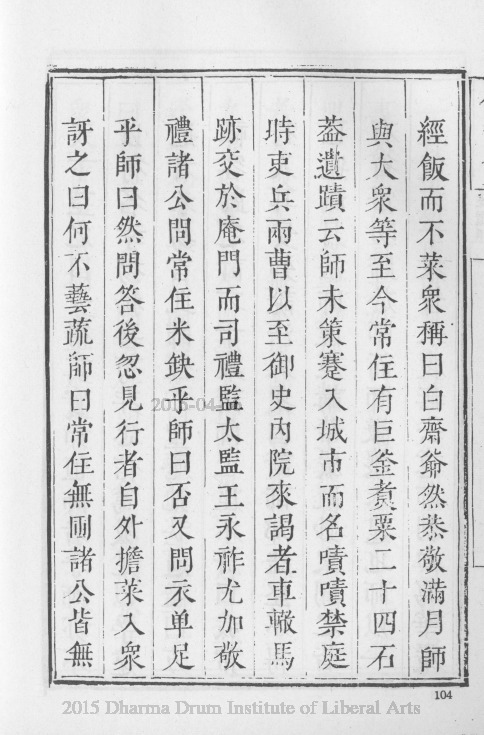 經飯而不菜衆稱曰白齋爺然恭敬滿月師
與大衆等至今常住有巨釜煮粟二十四石
葢遺蹟云師未策蹇入城市而名嘖嘖禁庭
時吏兵兩曹以至御史內院來謁者車轍馬
跡交於庵門而司禮監太監王永祚尤加敬
禮諸公問常住米缺乎師曰否又問衣单足
乎師曰然問答後忽見行者自外擔菜入衆
訝之曰何不藝蔬師曰常住無圃諸公皆無
104
2015 Dharma Drum Institute of Liberal Arts